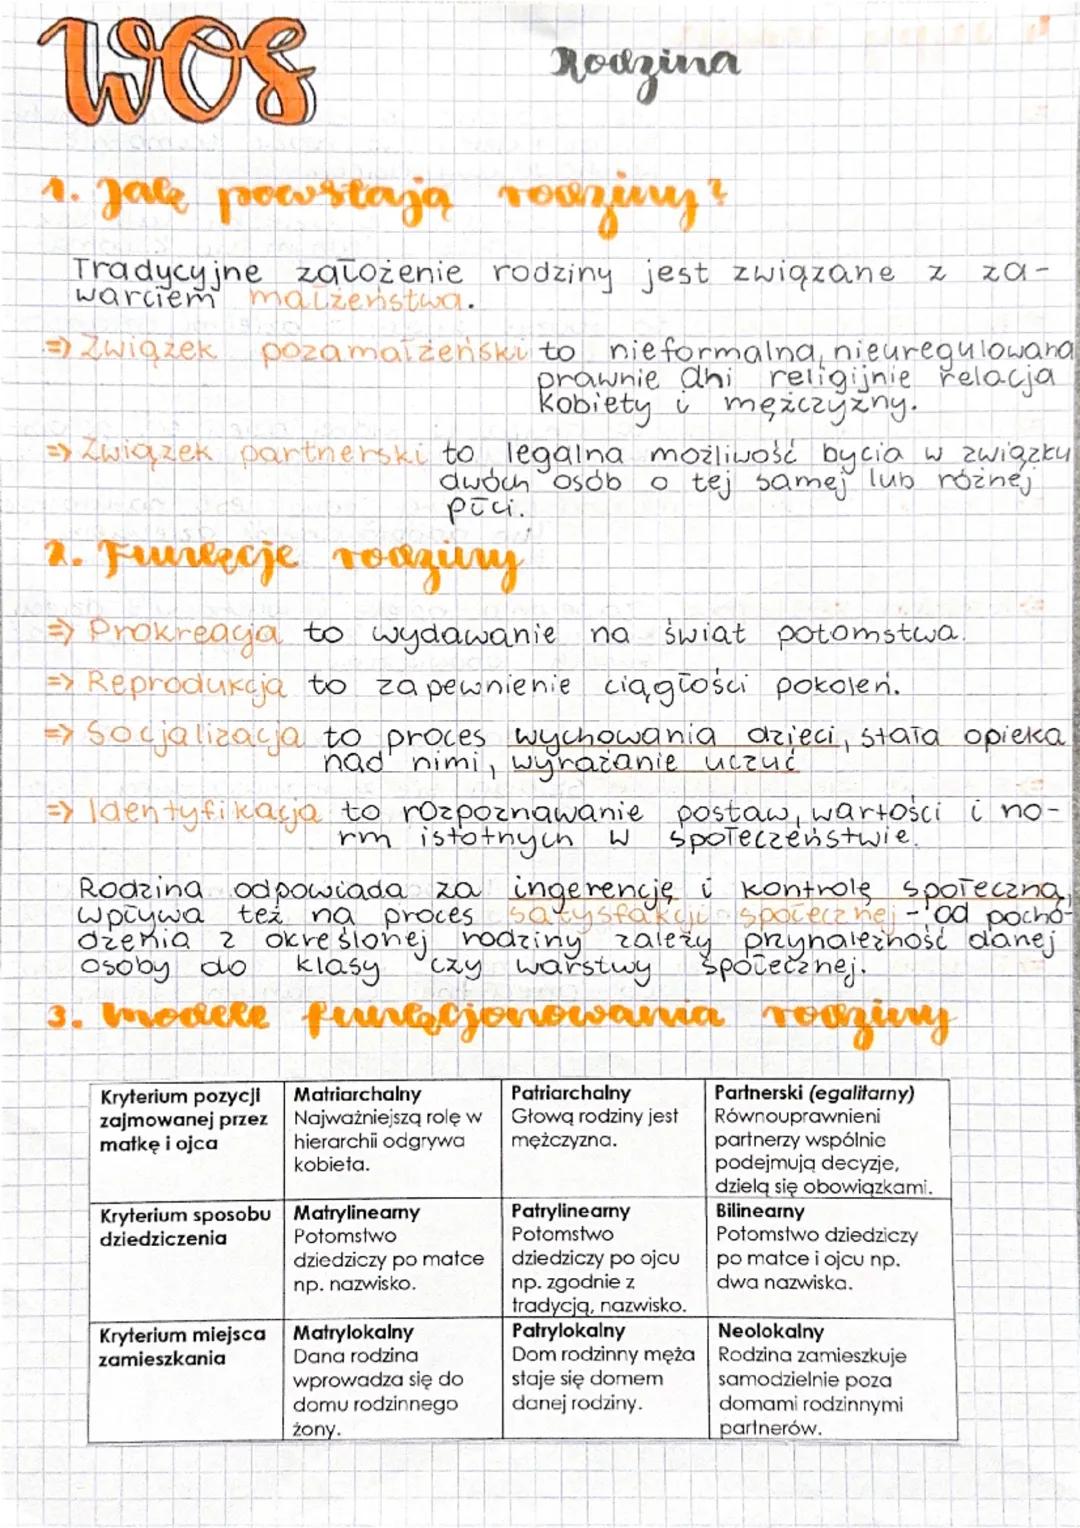 WOS
Rodzina
1. Jak powstają rodziny?
Tradycyjne założenie rodziny jest związane z za-
warciem małżeństwa.
=> Związek pozamałżeński to nieformalna, nieuregulowana
prawnie ani religijnie relacja
kobiety i mężczyzny.
=> Związek partnerski to legalna możliwość bycia w związku
dwóch osób o tej samej lub różnej
płci.
2. Funkcje rodziny
=> Prokreacja to wydawanie na świat potomstwa.
=> Reprodukcja to zapewnienie ciągłości pokoleń.
=> Socjalizacja to proces wychowania dzieci, stała opieka
nad nimi, wyrażanie uczuć
=> Identyfikacja to rozpoznawanie postaw, wartości i no-
rm istotnych w społeczeństwie.
Rodzina odpowiada za ingerencję i kontrolę społeczną,
wpływa też na proces satysfakcji społecznej - od pocho-
dzenia z określonej rodziny zależy przynależność danej
osoby do klasy czy warstwy społecznej.
3. Modele funkcjonowania rodziny
Kryterium pozycji
zajmowanej przez
matkę i ojca
Matriarchalny
Najważniejszą rolę w
hierarchii odgrywa
kobieta.
Patriarchalny
Głową rodziny jest
mężczyzna.
Partnerski (egalitarny)
Równouprawnieni
partnerzy wspólnie
podejmują decyzje,
dzielą się obowiązkami.
Kryterium sposobu
dziedziczenia
Matrylinearny
Potomstwo
dziedziczy po matce
np. nazwisko.
Patrylinearny
Potomstwo
dziedziczy po ojcu
np. zgodnie z
tradycją, nazwisko.
Bilinearny
Potomstwo dziedziczy
po matce i ojcu np.
dwa nazwiska.
Kryterium miejsca
zamieszkania
Matrylokalny
Dana rodzina
wprowadza się do
domu rodzinnego
żony.
Patrylokalny
Dom rodzinny męża
staje się domem
danej rodziny.
Neolokalny
Rodzina zamieszkuje
samodzielnie poza
domami rodzinnymi
partnerów.